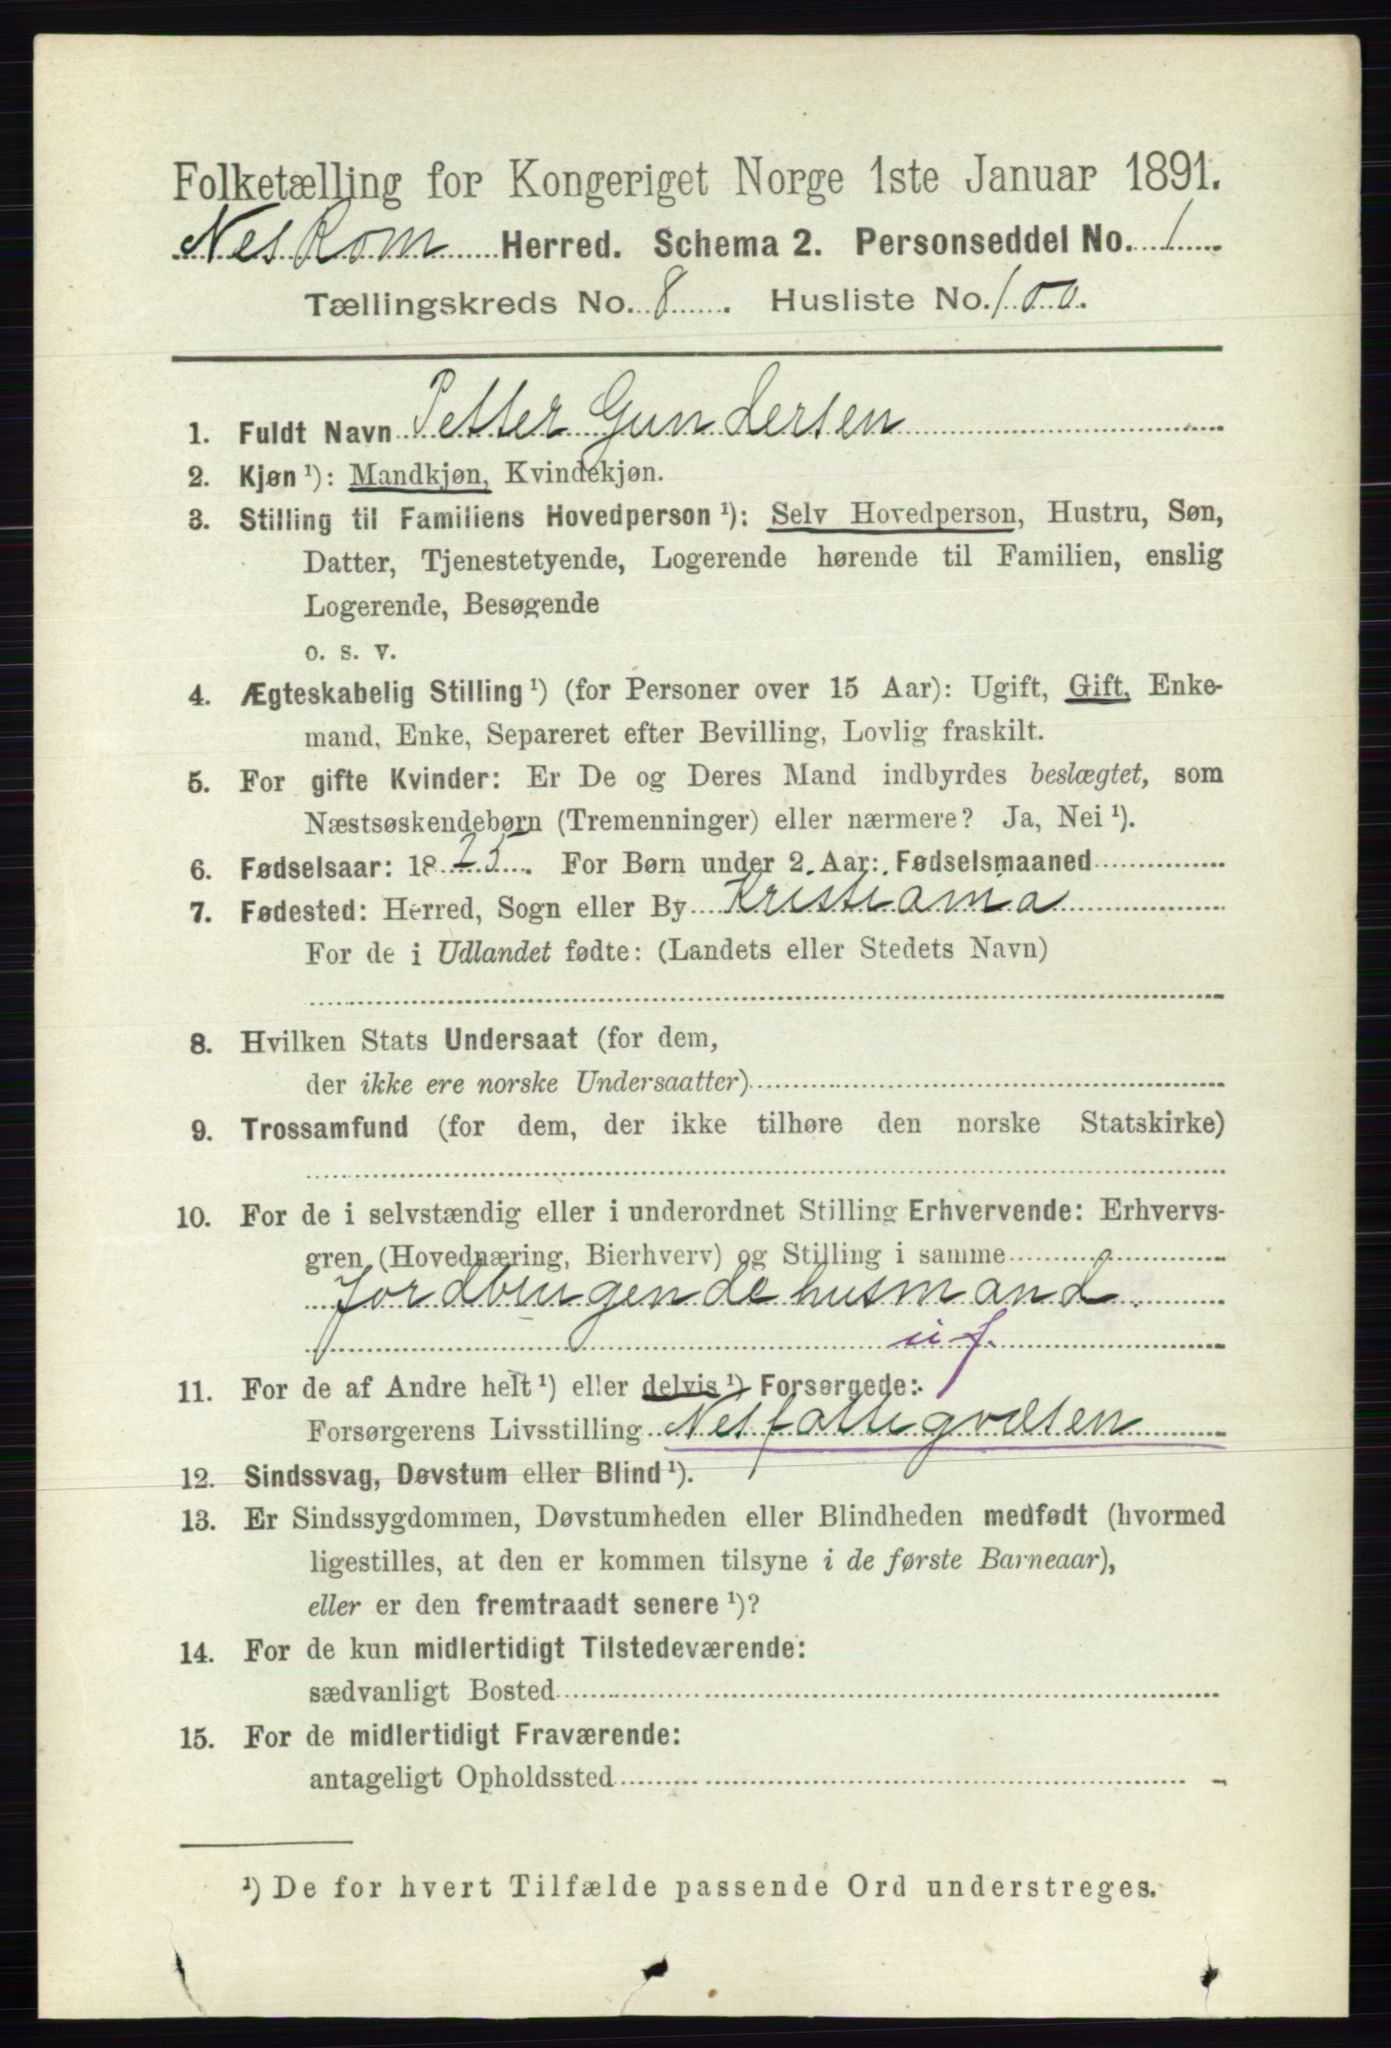 Folketælling for Kongeriget Norge 1ste Januar 1891.
Nes Rom Herred. Schema 2. Personseddel No. 1
Tællingskreds No. 8. Husliste No. 100.
1. Fuldt Navn Petter Gundersen
2. Kjøn ¹): Mandkjøn, Kvindekjøn.
3. Stilling til Familiens Hovedperson ¹): Selv Hovedperson, Hustru, Søn,
Datter, Tjenestetyende, Logerende hørende til Familien, enslig
Logerende, Besøgende
o. s. v.
4. Ægteskabelig Stilling ¹) (for Personer over 15 Aar): Ugift, Gift, Enke-
mand, Enke, Separeret efter Bevilling, Lovlig fraskilt.
5. For gifte Kvinder: Er De og Deres Mand indbyrdes beslægtet, som
Næstsøskendebørn (Tremenninger) eller nærmere? Ja, Nei ¹).
6. Fødselsaar: 1825. For Børn under 2 Aar: Fødselsmaaned
7. Fødested: Herred, Sogn eller By Kristiania
For de i Udlandet fødte: (Landets eller Stedets Navn)
8. Hvilken Stats Undersaat (for dem,
der ikke ere norske Undersaatter)
9. Trossamfund (for dem, der ikke tilhøre den norske Statskirke)
10. For de i selvstændig eller i underordnet Stilling Erhvervende: Erhvervs-
gren (Hovednæring, Bierhverv) og Stilling i samme
Jordbrugende husmand.
uf.
11. For de af Andre helt ¹) eller delvis ¹) Forsørgede:
Forsørgerens Livsstilling Nes fattigvæsen
12. Sindssvag, Døvstum eller Blind ¹).
13. Er Sindssygdommen, Døvstumheden eller Blindheden medfødt (hvormed
ligestilles, at den er kommen tilsyne i de første Barneaar),
eller er den fremtraadt senere ¹)?
14. For de kun midlertidigt Tilstedeværende:
sædvanligt Bosted
15. For de midlertidigt Fraværende:
antageligt Opholdssted
¹) De for hvert Tilfælde passende Ord understreges.